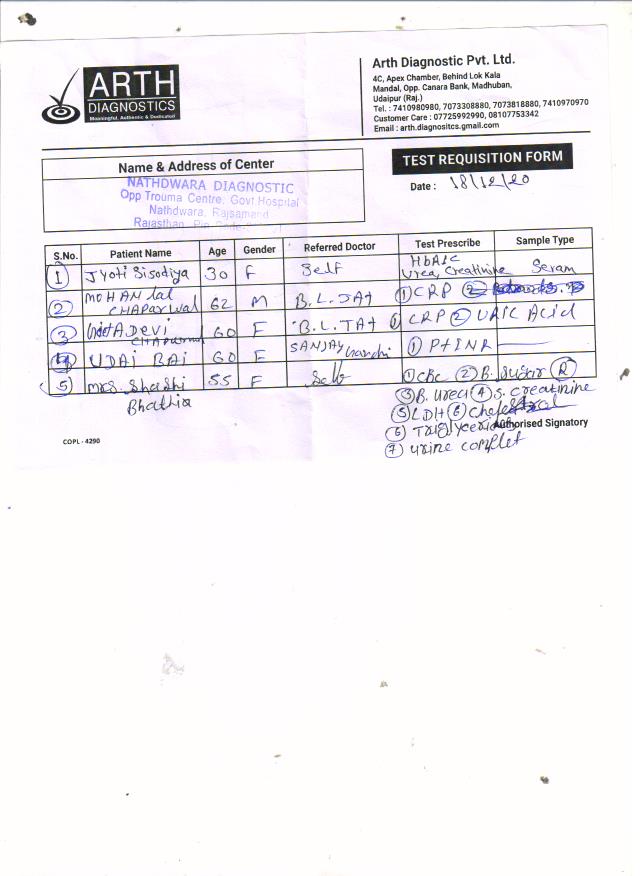 ARTH
DIAGNOSTICS
Meaningful, Authentic & Dedicated
Arth Diagnostic Pvt. Ltd.
4C, Apex Chamber, Behind Lok Kala
Mandal, Opp. Canara Bank, Madhuban,
Udaipur (Raj.)
Tel. : 7410980980, 7073308880, 7073818880, 7410970970
Customer Care : 07725992990, 08107753342
Email : arth.diagnositcs.gmail.com
Name & Address of Center
TEST REQUISITION FORM
NATHDWARA DIAGNOSTIC
Opp Trouma Centre, Govt Hospital
Nathdwara, Rajsamand
Rajasthan, Pin Code
Date : 18/12/20
S.No. Patient Name Age Gender Referred Doctor Test Prescribe Sample Type
1 Jyoti Sisodiya 30 F Self HbA1C Urea, Creatinine Seram
2 MOHAN lal CHAPARWAL 62 M B.L. JAT 1 CRP 2
3 A Devi 60 F B.L. JAT 1 CRP 2 URIC Acid
4 UDAI BAI 60 F SANJAY Gandhi 1 PTINR
5 Mrs. Shashi Bhathia 55 F Self 1 CBC 2 B. Sugar R
3 B. Urea 4 S. creatinine
5 LDH 6
6 Triglyceride
Authorised Signatory
7 urine complet
COPL - 4290